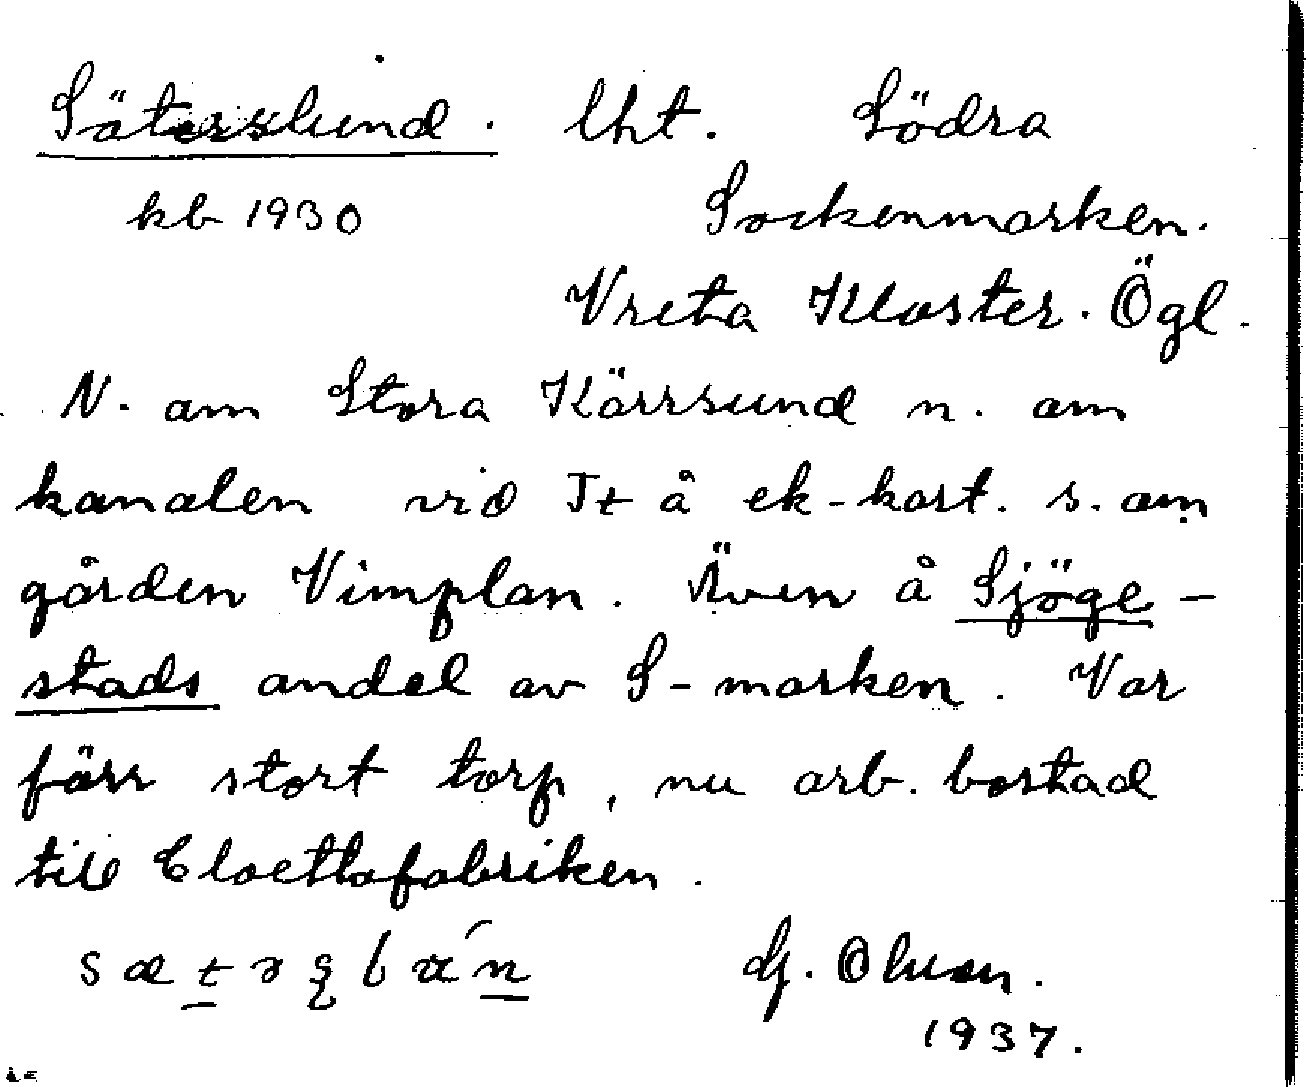 Säterslund. lht. Södra
kb 1930 Sockenmarken.
Vreta Kloster. Ögl.
N. om Stora Kärrsund n. om
kanalen vid Tt å ek-kart. s. om
gården Vimplan. Även å Sjöge-
stads andel av S-marken. Var
förr stort torp, nu arb. bostad
till Cloettafabriken.
G. Olsson.
1937.